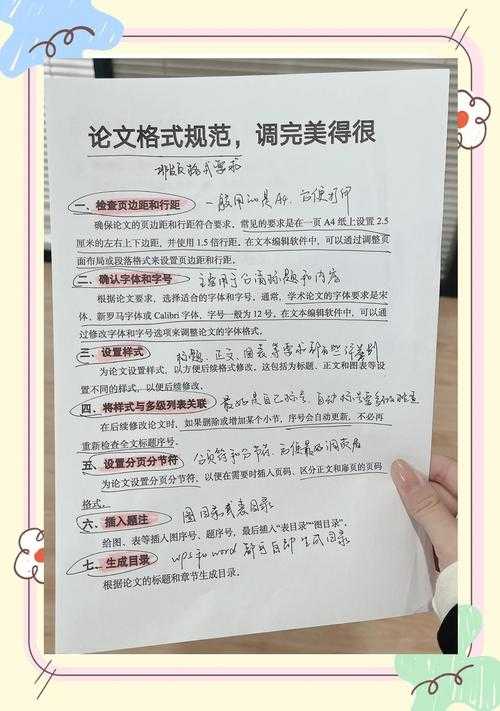 论文格式规范，调完美得很
排版格式要求
一、检查页边距和行距 一般用的是A4，方便打印
确保论文的页边距和行距符合要求，常见的要求是在一页 A4 纸上设置 2.5
厘米的左右上下边距，并使用 1.5 倍行距。在文本编辑软件中，可以通过调整页
面布局或段落格式来设置页边距和行距。
二、确认字体和字号 主要用于分清标题和内容
根据论文要求，选择适合的字体和字号。通常，学术论文的字体要求是宋
体、新罗马字体或 Calibri 字体，字号一般为 12 号。在文本编辑软件中，可以通
过修改字体和字号选项来调整论文的字体格式。
三、设置样式 标题、正文、图表等要求都有些许差别
为论文设置样式，以方便后续格式修改，这包括为标题、正文和图表等设
置不同的样式，以便后续修改。
四、将样式与多级列表关联 最好是自己标号，自动标号
在后续修改论文时，如果删除或增加某个小节，序号会自动更新，不必再
重新检查全文标题序号。
五、设置分页分节符 分页符和分节符，方便最后调页眉
为论文设置分页分节符，以便在需要时插入页码，区分正文和扉页的页码
格式。
六、插入题注 图目录或表目录
给图、表等插入图序号、题序号，最后插入“表目录”“图目录”。
七、生成目录 wps和word都可自动生成目录
根据论文的标题和章节生成目录。